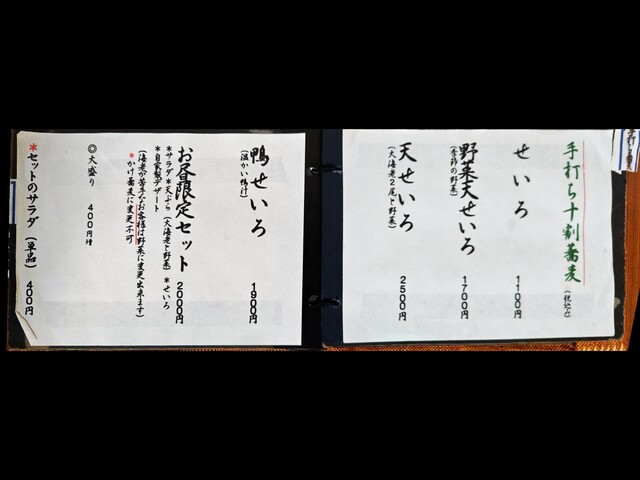 手打ち十割蕎麦 (税込み)
せいろ 1100円
野菜天せいろ 1700円
(季節の野菜)
天せいろ 2500円
(大海老2尾と野菜)
鴨せいろ 1900円
(温かい鴨汁)
お昼限定セット 2000円
*サラダ*天ぷら(大海老と野菜)*せいろ
*自家製デザート
(海老が苦手なお客様は野菜に変更出来ます)
*かけ蕎麦に変更不可
◎大盛り 400円増
*セットのサラダ(単品) 400円